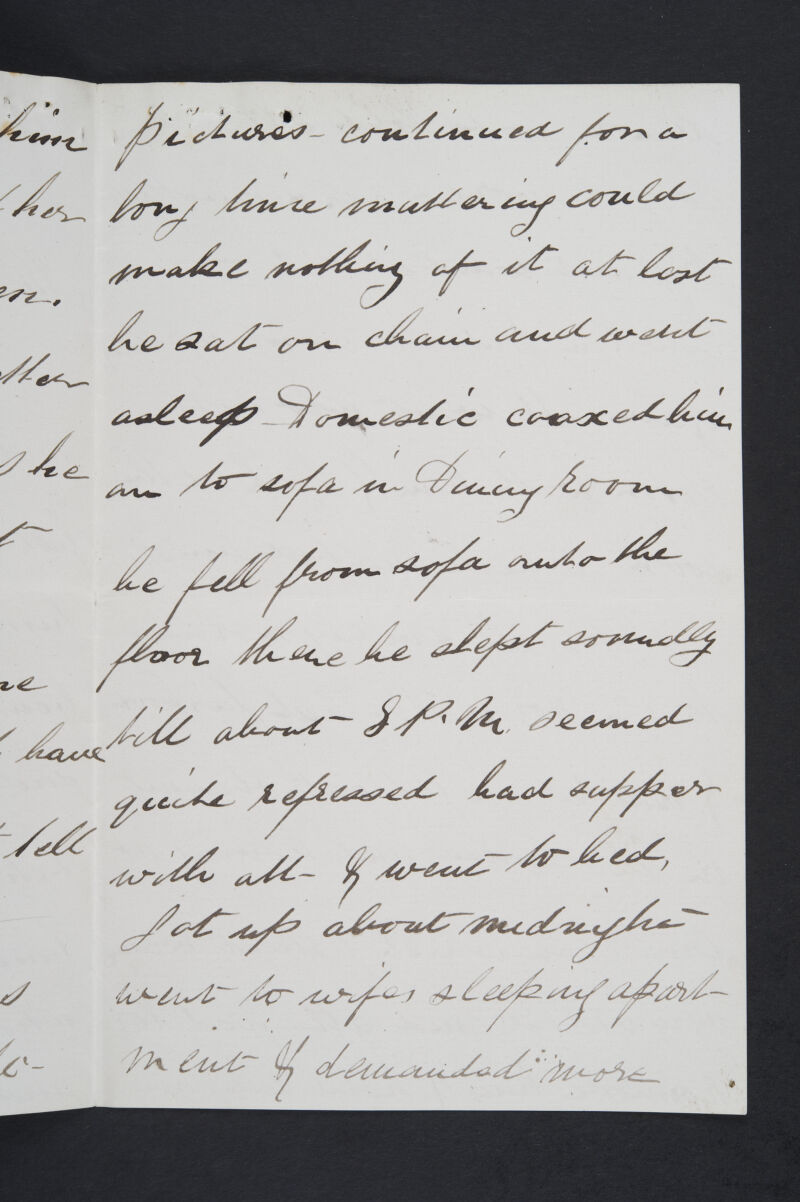 him
her
en.
tter
s he
ne
have
tell
s
pictures - continued for a
long time muttering could
make nothing of it at last
he sat on chair and went
asleep - Domestic coaxed him
on to sofa in Dining room
he fell from sofa onto the
floor there he slept soundly
till about 8 P.M. seemed
quite refressed had supper
with all - & went to bed,
Got up about midnight
went to wifes sleeping apart-
ment & demanded more